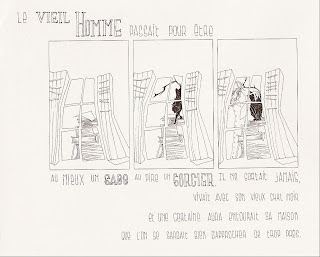 LE VIEIL HOMME PASSAIT POUR ÊTRE
AU MIEUX UN SAGE AU PIRE UN SORCIER. IL NE SORTAIT JAMAIS,
VIVAIT AVEC SON VIEUX CHAT NOIR
ET UNE CERTAINE AURA ENTOURAIT SA MAISON
QUE L'ON SE GARDAIT BIEN D'APPROCHER DE TROP PRÈS.